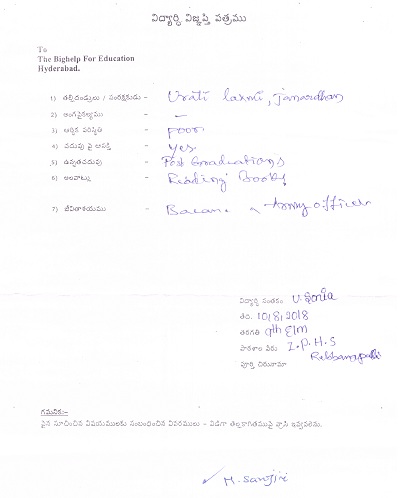 విద్యార్థి విజ్ఞప్తి పత్రము
To
The Bighelp For Education
Hyderabad.
1) తల్లిదండ్రులు / సంరక్షకుడు - Urati laxmi, Janardhan
2) అంగవైకల్యము - -
3) ఆర్థిక పరిస్థితి - poor
4) చదువు పై ఆసక్తి - yes.
5) ఉన్నతచదువు - Post Graduations
6) అలవాట్లు - Reading Books
7) జీవితాశయము - Army officer
విద్యార్థి సంతకం U. Sonia
తేది. 10/8/2018
తరగతి 9th E/m
పాఠశాల పేరు Z.P.H.S
పూర్తి చిరునామా
గమనిక:-
పైన సూచించిన విషయములకు సంబంధించిన వివరములు - విడిగా తెల్లకాగితముపై వ్రాసి ఇవ్వవలెను.